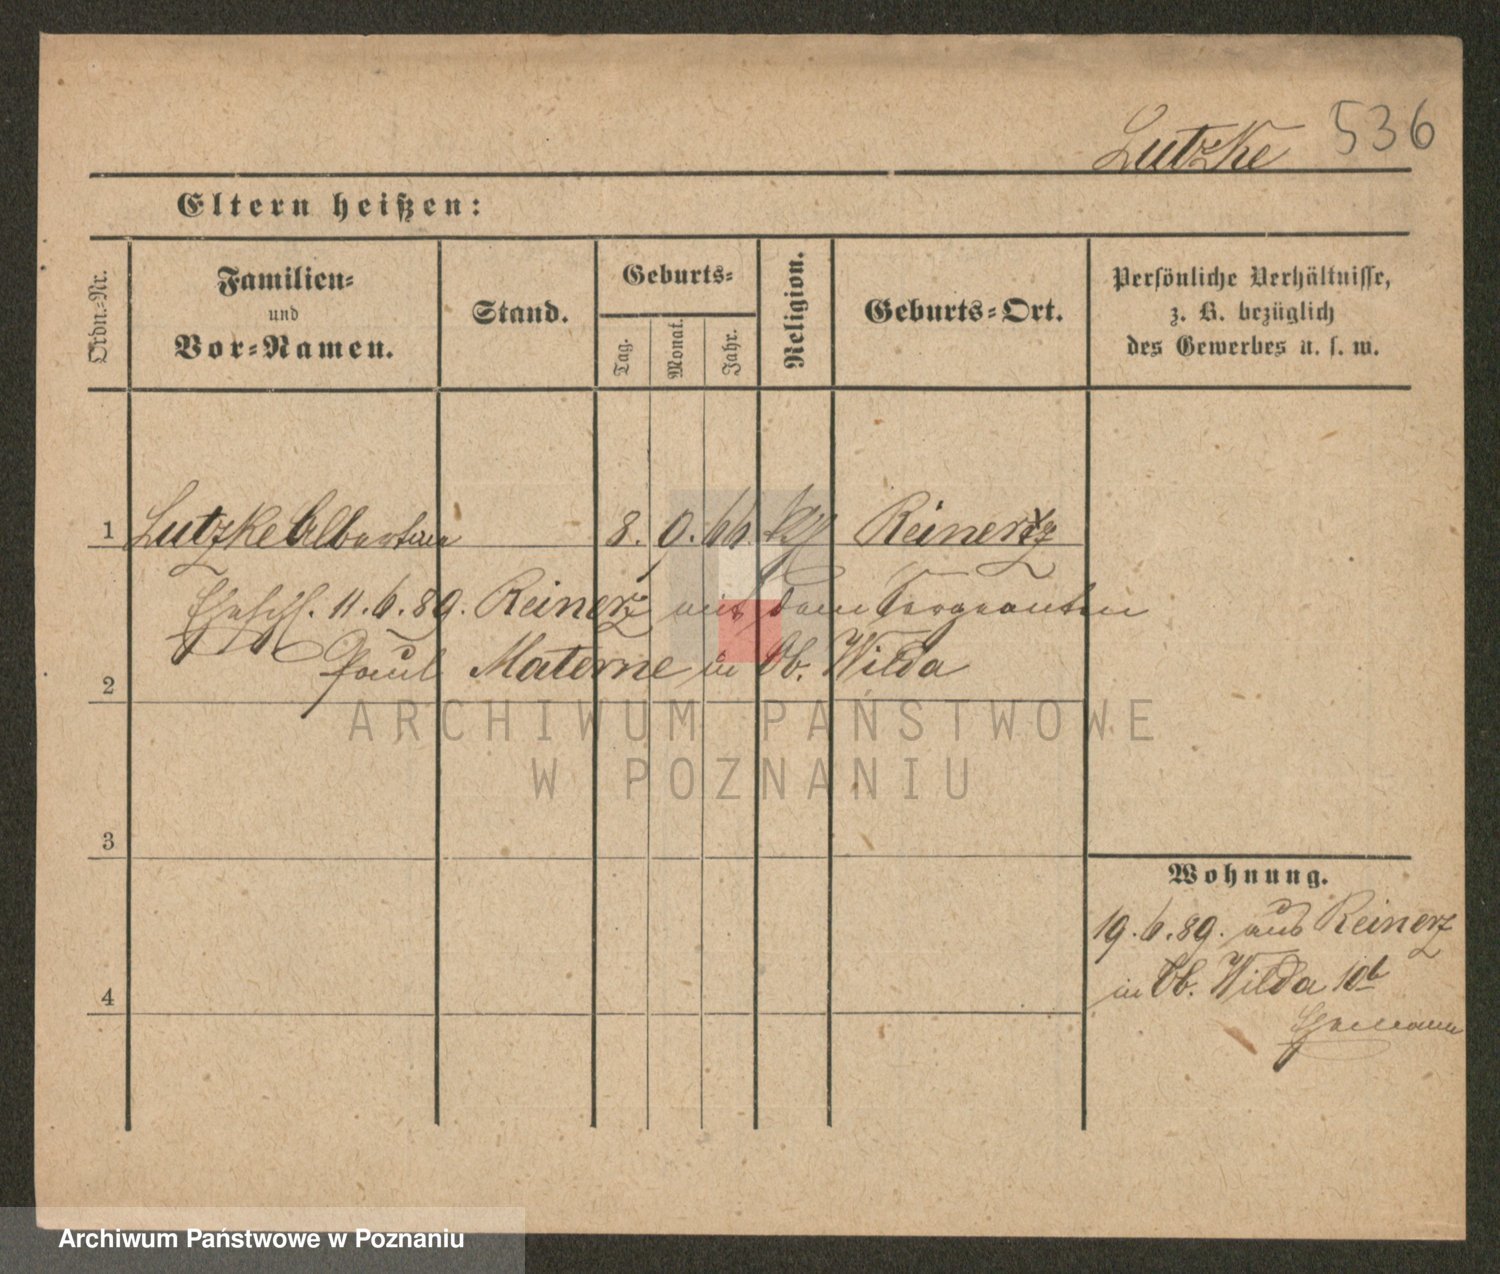 Lutzke 536
Eltern heißen:
Ordn.-Nr.
Familien-
und
Vor-Namen.
Stand.
Geburts-
Tag.
Monat.
Jahr.
Religion.
Geburts-Ort.
Persönliche Verhältnisse,
z. B. bezüglich
des Gewerbes u. s. w.
1 Lutzke Albertine 8. 9. 66. Reinerz
Eheschl. 11.6.89. Reinerz mit dem Sergeanten
Paul Materne in Ob. Wilda
2
ARCHIWUM PAŃSTWOWE
W POZNANIU
3
Wohnung.
19.6.89. aus Reinerz
in Ob. Wilda 10b
4
Ehemann
Archiwum Państwowe w Poznaniu